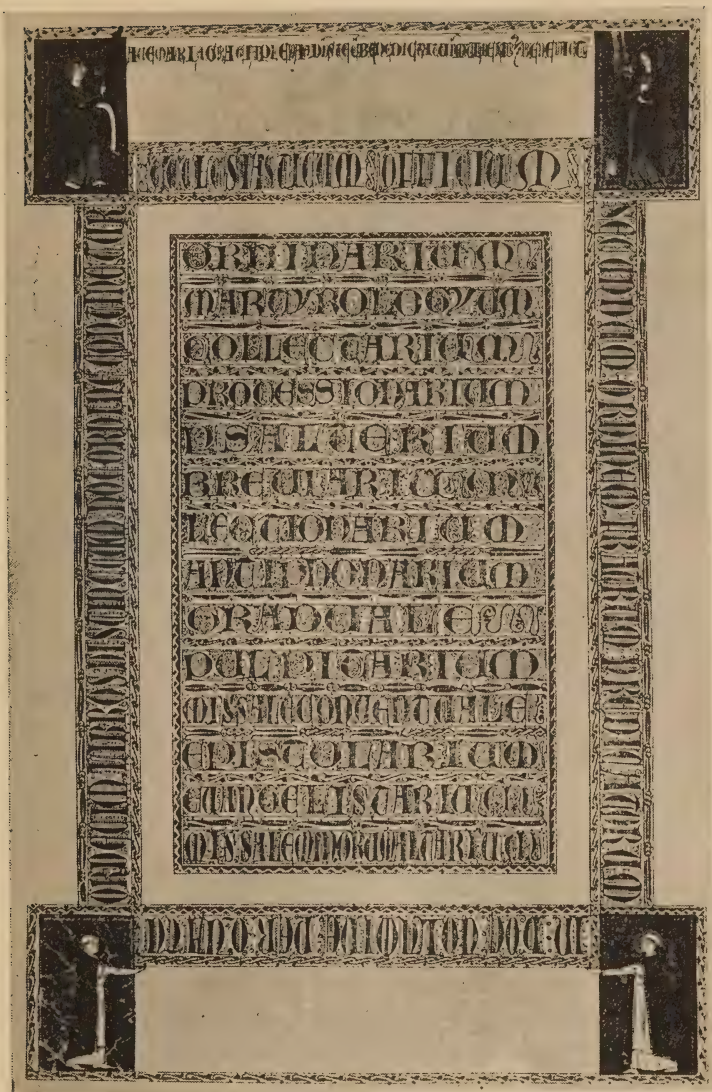 AVE MARIA GRACIA PLENA DNS TECU BENEDICTA TU IN MULIERIB⁊ BENEDICT
ECCLESIASTICUM OFFICIUM
SECUNDUM ORDINEM FRATRUM PREDICATORUM
IN HOC UOLUMINE PER QUATU
ORDECIM LIBROS DISTINCTUM HOC ORDINE CONTINETUR
ORDINARIUM
MARTYROLOGYUM
COLLECTARIUM
PROCESSIONARIUM
PSALTERIUM
BREUIARIUM
LECTIONARIUM
ANTIPHONARIUM
GRADUALE
PULPITARIUM
MISSALE CONUENTUALE
EPISTOLARIUM
EUANGELISTARIUM
MISSALE MINORUM ALTARIUM